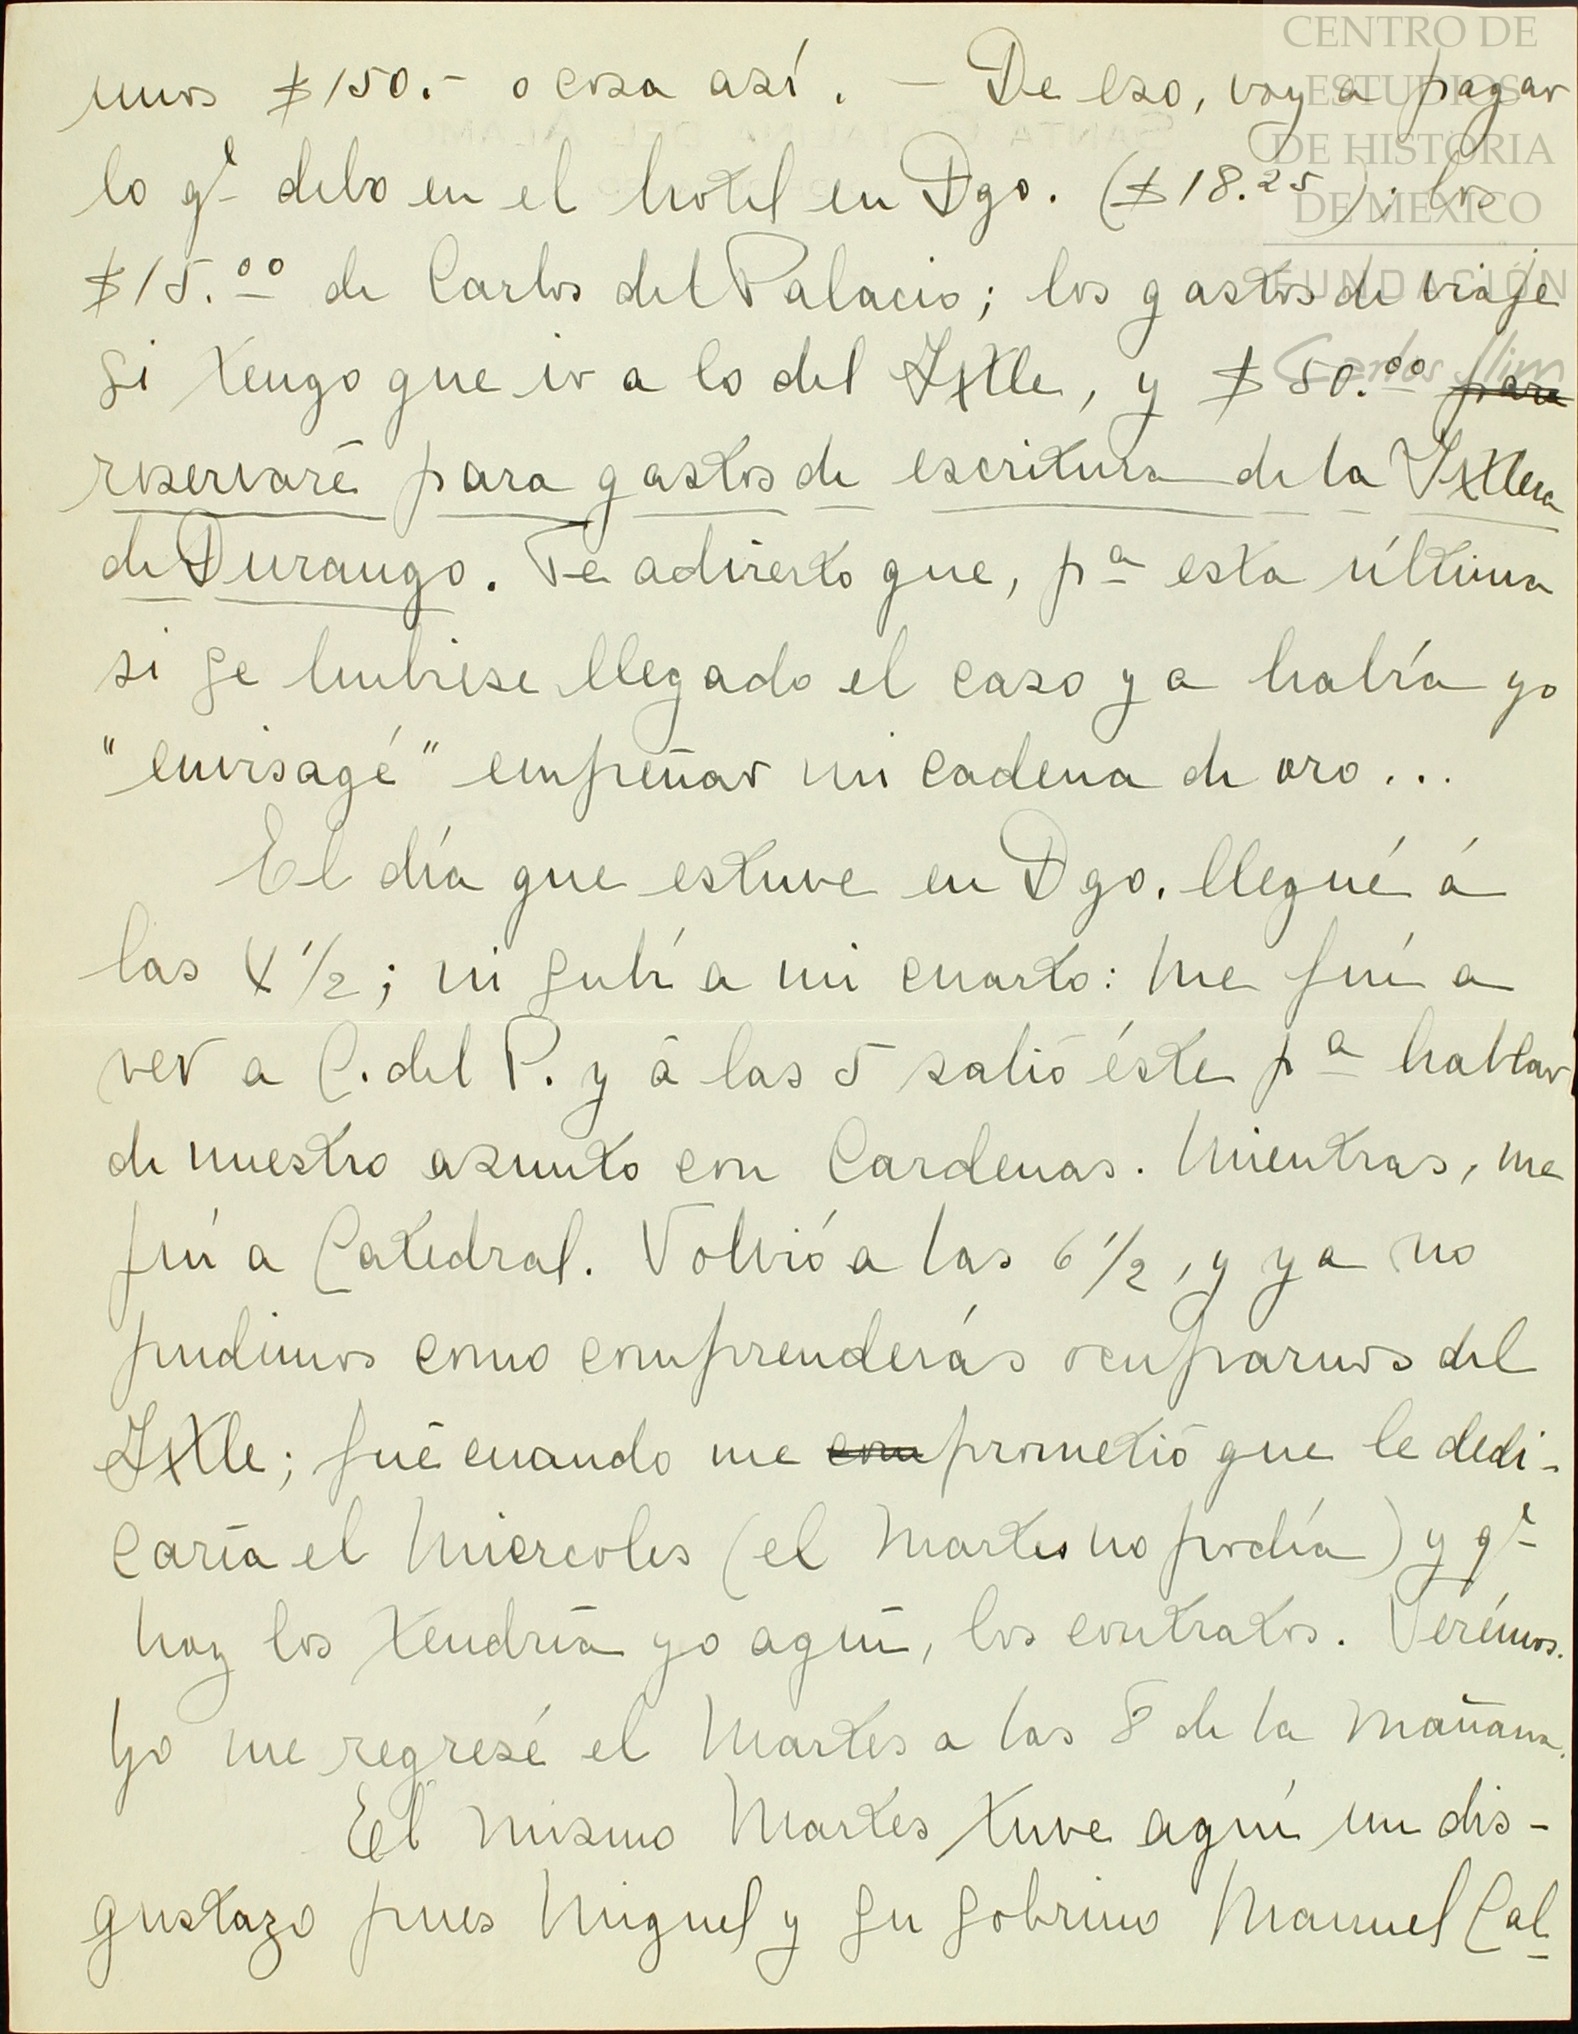 CENTRO DE
ESTUDIOS
DE HISTORIA
DE MEXICO
FUNDACIÓN
Carlos Slim
unos $150.- o cosa así. — De eso, voy a pagar
lo qe debo en el hotel en Dgo. ($18.25); los
$15.00 de Carlos del Palacio; los gastos de viaje
si tengo que ir a lo del Ixtle, y $50.00 para
reservaré para gastos de escritura de la Ixtlera
de Durango. Te advierto que, pa esta última
si se hubiese llegado el caso ya habría yo
"envisagé" empeñar mi cadena de oro...
El día que estuve en Dgo. llegué á
las 4 1/2; ni subí a mi cuarto: me fuí a
ver a C. del P. y á las 5 salió éste pa hablar
de nuestro asunto con Cardenas. Mientras, me
fuí a Catedral. Volvió a las 6 1/2, y ya no
pudimos como comprenderás ocuparnos del
Ixtle; fué cuando me com prometió que le dedi-
caría el Miercoles (el Martes no podía) y qe
hoy los tendría yo aquí, los contratos. Verémos.
Yo me regresé el Martes a las 8 de la mañana.
El mismo Martes tuve aquí un dis-
gustazo pues Miguel y su sobrino Manuel Cal-